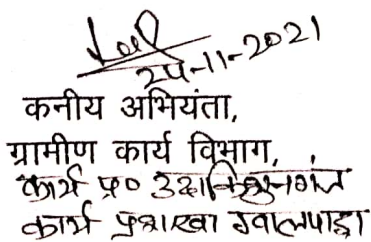 24-11-2021
कनीय अभियंता,
ग्रामीण कार्य विभाग,
कार्य प्र०
कार्य प्रशाखा ग्वालपाड़ा